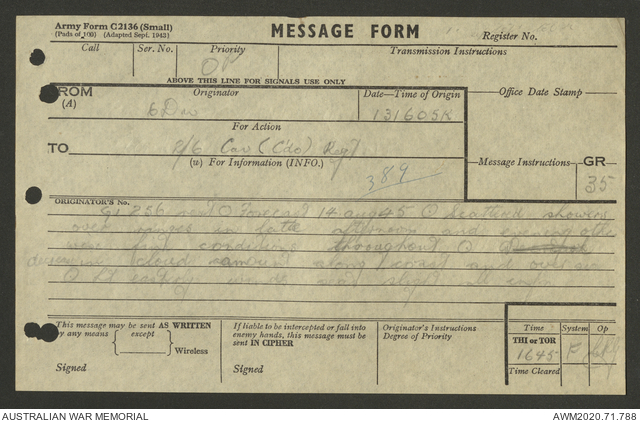 Army Form C2136 (Small)
(Pads of 100) (Adapted Sept. 1943)
MESSAGE FORM
Register No.
Call Ser. No. Priority Transmission Instructions
OP
ABOVE THIS LINE FOR SIGNALS USE ONLY
FROM Originator Date—Time of Origin Office Date Stamp
(A) 6 Div 131605K
For Action
TO 2/6 Cav (Cdo) Regt
(W) For Information (INFO.) Message Instructions GR
389 35
ORIGINATOR'S No.
G1 256 O Forecast 14 aug 45 O Scattered showers
over ranges in late afternoon and evening other
wise fair conditions throughout O
cloud amount along coast and over
O Lt easterly winds
This message may be sent AS WRITTEN
by any means except Wireless
Signed
If liable to be intercepted or fall into
enemy hands, this message must be
sent IN CIPHER
Signed
Originator's Instructions
Degree of Priority
Time System Op
THI or TOR
1645
Time Cleared
AUSTRALIAN WAR MEMORIAL AWM2020.71.788